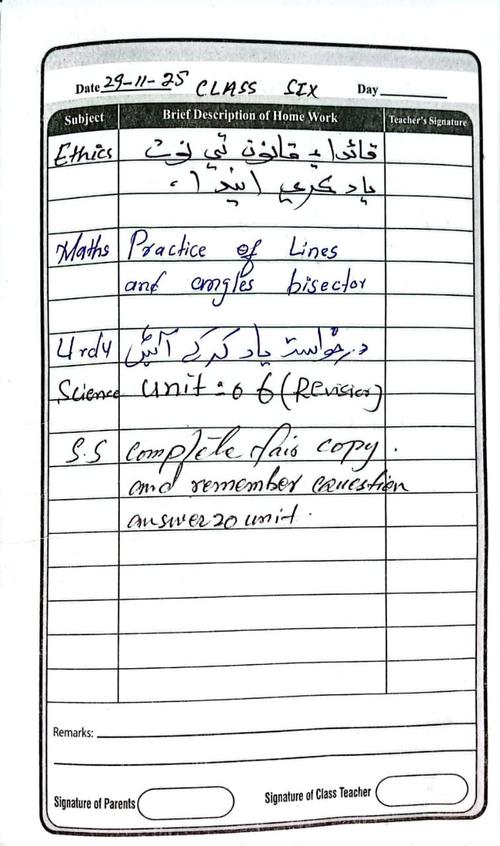 Date 29-11-25 CLASS SIX Day
Subject Brief Description of Home Work Teacher's Signature
Ethics قائداء قانون تي نوٽ
ياد ڪري اينداـ
Maths Practice of Lines
and angles bisector
Urdu درخواست یاد کر کے آئیں
Science unit :06 (Revision)
S.S complete fair copy.
and remember question
answer 20 unit.
Remarks:
Signature of Parents Signature of Class Teacher